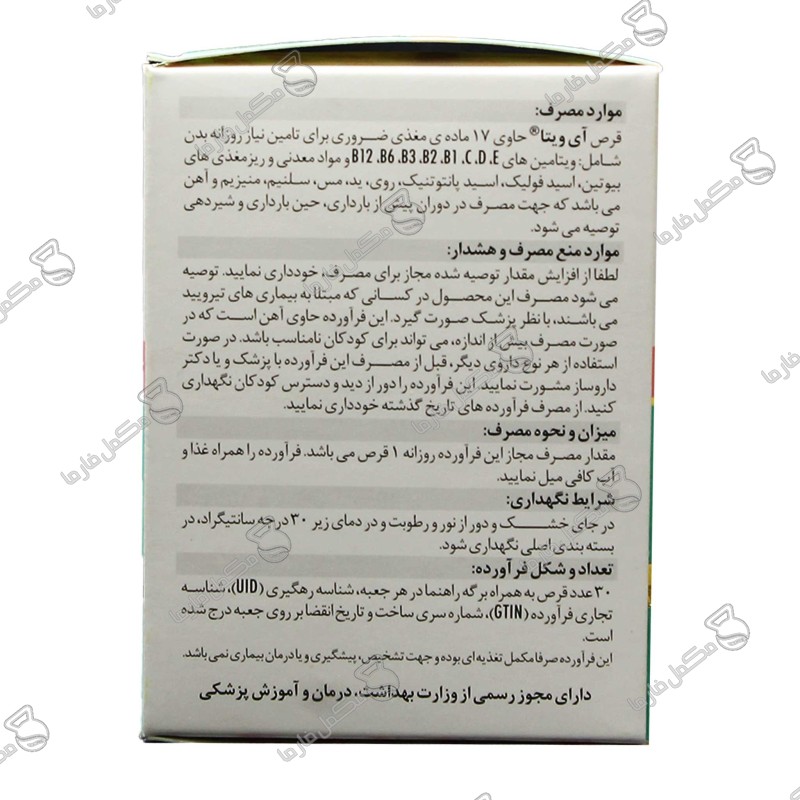 موارد مصرف:
قرص آی ویتا® حاوی ۱۷ ماده ی مغذی ضروری برای تامین نیاز روزانه بدن
شامل: ویتامین های B12 ،B6 ،B3 ،B2 ،B1 ،C ،D ،E و مواد معدنی و ریزمغذی های
بیوتین، اسید فولیک، اسید پانتوتنیک، روی، ید، مس، سلنیم، منیزیم و آهن
می باشد که جهت مصرف در دوران پیش از بارداری، حین بارداری و شیردهی
توصیه می شود.
موارد منع مصرف و هشدار:
لطفا از افزایش مقدار توصیه شده مجاز برای مصرف، خودداری نمایید. توصیه
می شود مصرف این محصول در کسانی که مبتلا به بیماری های تیرویید
می باشند، با نظر پزشک صورت گیرد. این فرآورده حاوی آهن است که در
صورت مصرف بیش از اندازه، می تواند برای کودکان نامناسب باشد. در صورت
استفاده از هر نوع داروی دیگر، قبل از مصرف این فرآورده با پزشک و یا دکتر
داروساز مشورت نمایید. این فرآورده را دور از دید و دسترس کودکان نگهداری
کنید. از مصرف فرآورده های تاریخ گذشته خودداری نمایید.
میزان و نحوه مصرف:
مقدار مصرف مجاز این فرآورده روزانه ۱ قرص می باشد. فرآورده را همراه غذا و
آب کافی میل نمایید.
شرایط نگهداری:
در جای خشک و دور از نور و رطوبت و در دمای زیر ۳۰ درجه سانتیگراد، در
بسته بندی اصلی نگهداری شود.
تعداد و شکل فرآورده:
۳۰ عدد قرص به همراه برگه راهنما در هر جعبه، شناسه رهگیری (UID)، شناسه
تجاری فرآورده (GTIN)، شماره سری ساخت و تاریخ انقضا بر روی جعبه درج شده
است.
این فرآورده صرفا مکمل تغذیه ای بوده و جهت تشخیص، پیشگیری و یا درمان بیماری نمی باشد.
دارای مجوز رسمی از وزارت بهداشت، درمان و آموزش پزشکی
مکمل فارما